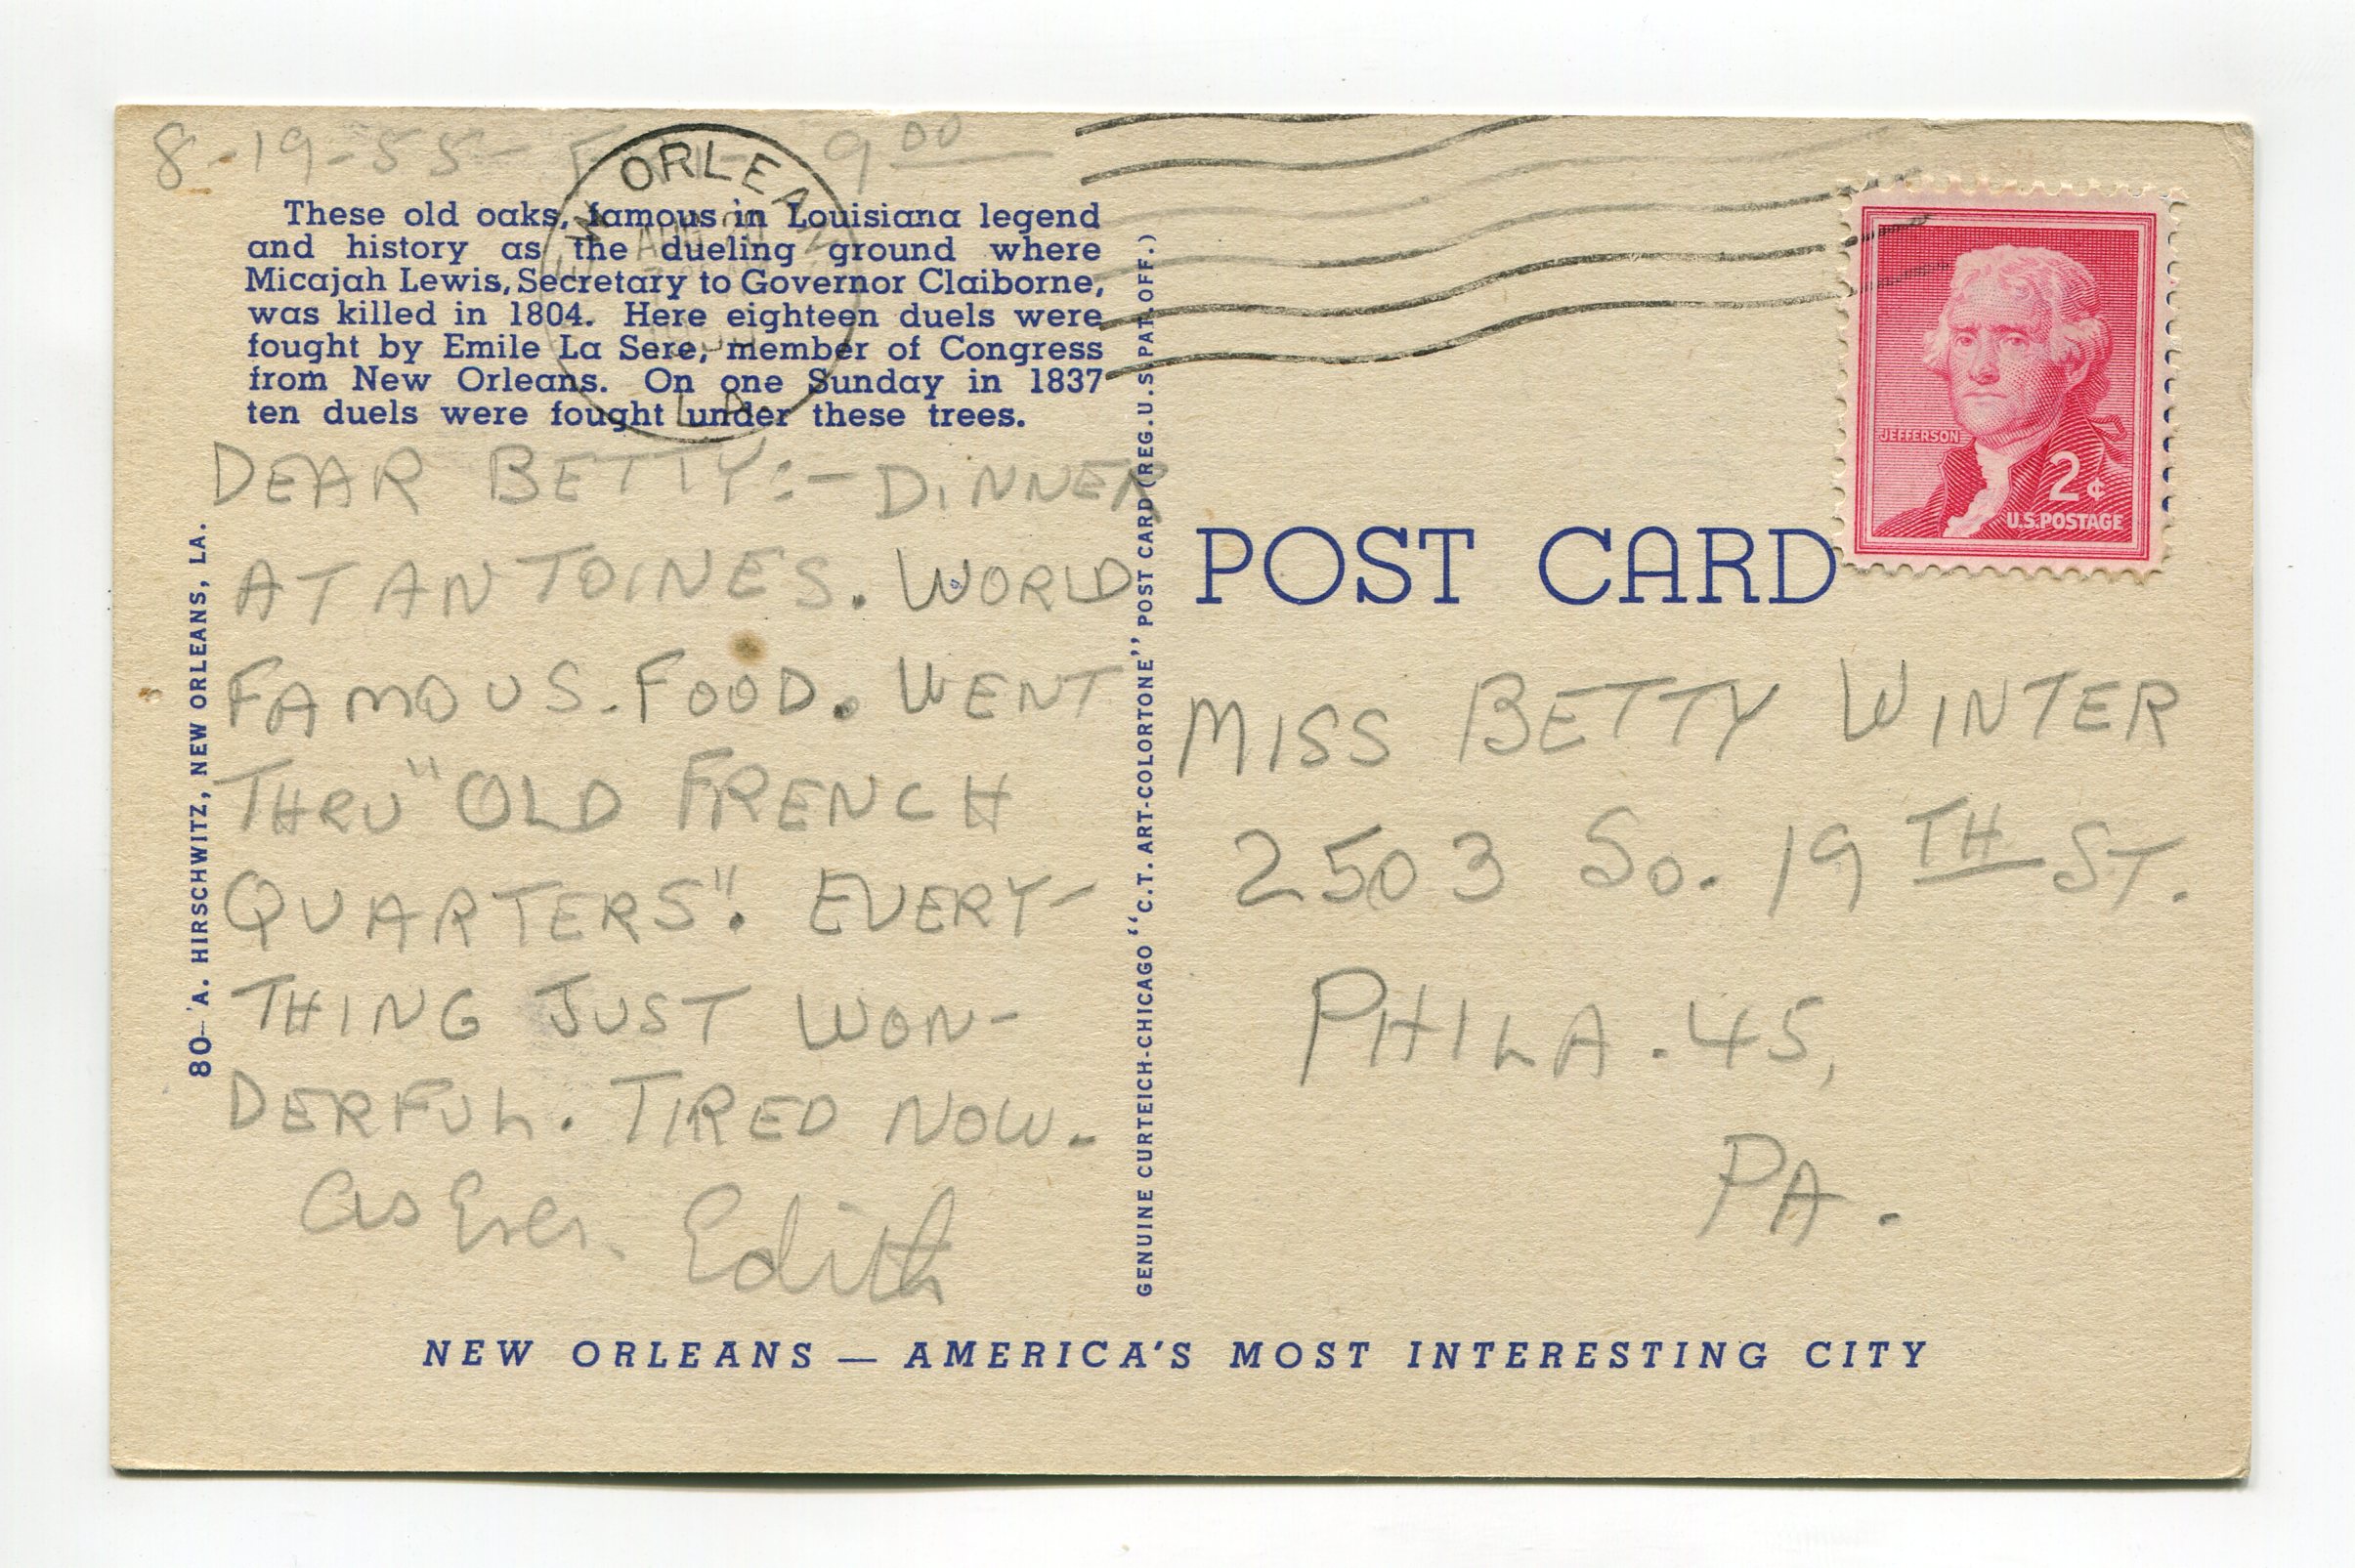 8-19-55- FRI- 9 00
NEW ORLEANS
AUG 20
LA.
These old oaks, famous in Louisiana legend
and history as the dueling ground where
Micajah Lewis, Secretary to Governor Claiborne,
was killed in 1804. Here eighteen duels were
fought by Emile La Sere, member of Congress
from New Orleans. On one Sunday in 1837
ten duels were fought under these trees.
DEAR BETTY:- DINNER
AT ANTOINES. WORLD
FAMOUS. FOOD. WENT
THRU "OLD FRENCH
QUARTERS". EVERY-
THING JUST WON-
DERFUL. TIRED NOW.
As Ever. Edith
80- A. HIRSCHWITZ, NEW ORLEANS, LA.
GENUINE CURTEICH-CHICAGO "C.T. ART-COLORTONE" POST CARD (REG. U.S. PAT. OFF.)
JEFFERSON
2¢
U.S. POSTAGE
POST CARD
MISS BETTY WINTER
2503 So. 19TH ST.
PHILA. 45,
PA.
NEW ORLEANS — AMERICA'S MOST INTERESTING CITY